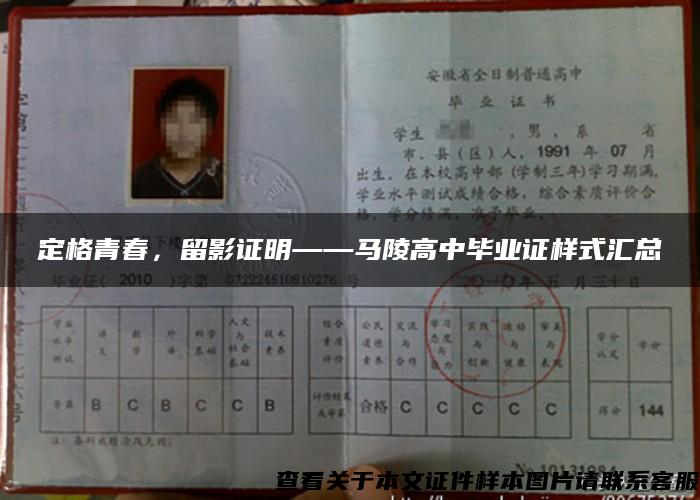 安徽省全日制普通高中
毕业证书
学生 ，男，系 省
市、县（区）人，1991 年 07 月
出生。在本校高中部（学制三年）学习期满，
学业水平测试成绩合格，综合素质评价合
格，学分修满，准予毕业。
定格青春，留影证明——马陵高中毕业证样式汇总
毕业证（ 2010 ）字第 072224510810276 号
年 五 月 三十 日
学业水平测试 语文 数学 外语 科学基础 人文与社会基础 技术素养
等第 B C B C C B
综合素质评价 公民道德素养 交流与合作 学习态度与能力 实践与创新 运动与健康 审美与表现
评价结果或等第 合格 C C C C C
学分认定 学分
得分 144
注：各科成绩涂改无效。
No 10131984
查看关于本文证件样本图片请联系客服